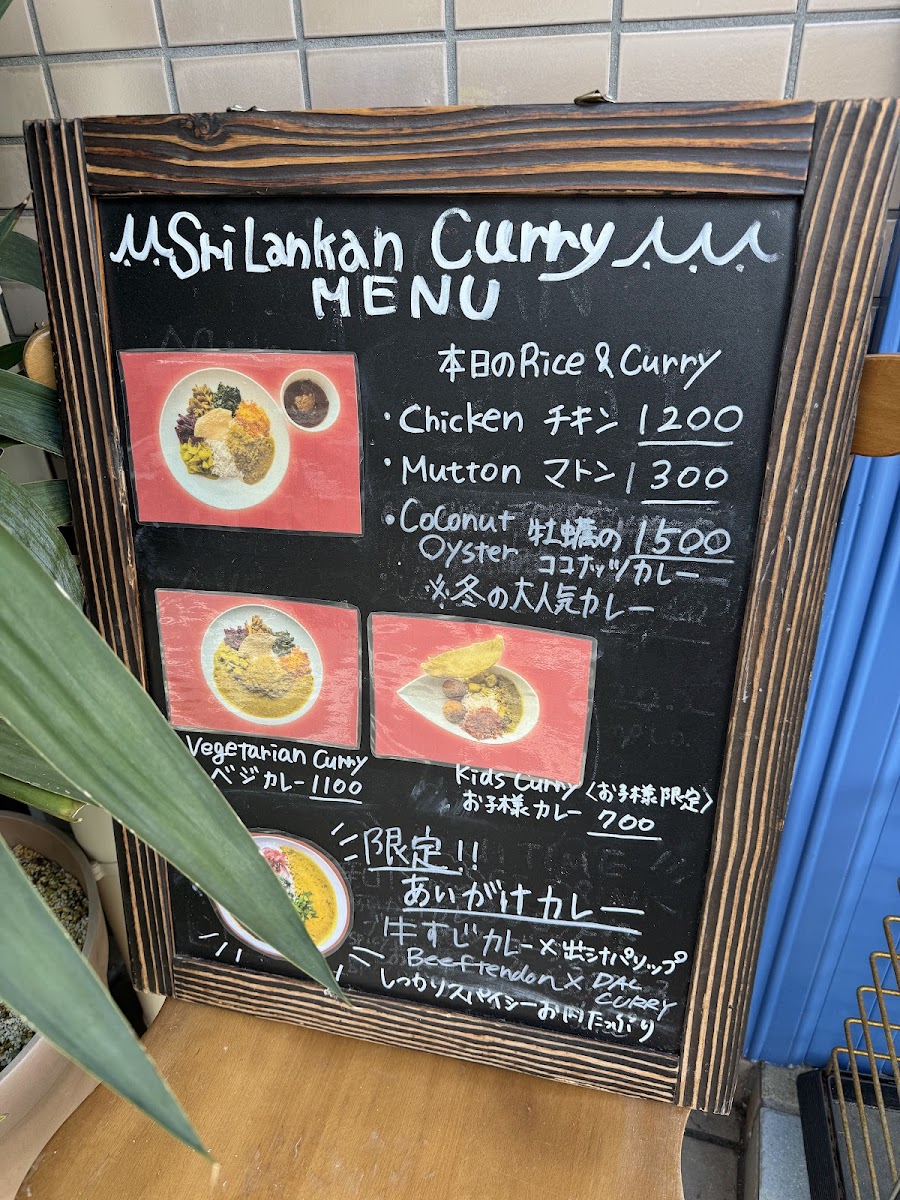 Sri Lankan Curry
MENU
本日のRice & Curry
・Chicken チキン 1200
・Mutton マトン 1300
・Coconut 牡蠣の 1500
Oyster ココナッツカレー
※冬の大人気カレー
Vegetarian Curry
ベジカレー 1100
Kids Curry 〈お子様限定〉
お子様カレー 700
限定!!
あいがけカレー
牛すじカレー×出汁パリップ
Beeftendon × DAL
CURRY
しっかりスパイシーお肉たっぷり